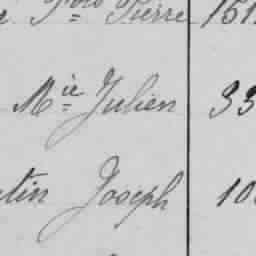 Pierre 161
Mie Julien 33
tin Joseph 10